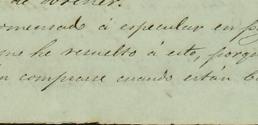 de obtener.
omenzado á especular en p
me he resuelto á esto, porqu
n comprarse cuando están b